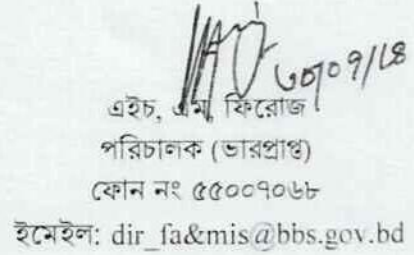 ৩০/০৭/১৪
এইচ, এম, ফিরোজ
পরিচালক (ভারপ্রাপ্ত)
ফোন নং ৫৫০০৭০৬৮
ইমেইল: dir_fa&mis@bbs.gov.bd